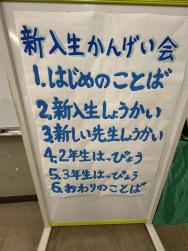 新入生かんげい会
1.はじめのことば
2.新入生しょうかい
3.新しい先生しょうかい
4.2年生はっぴょう
5.3年生はっぴょう
6.おわりのことば